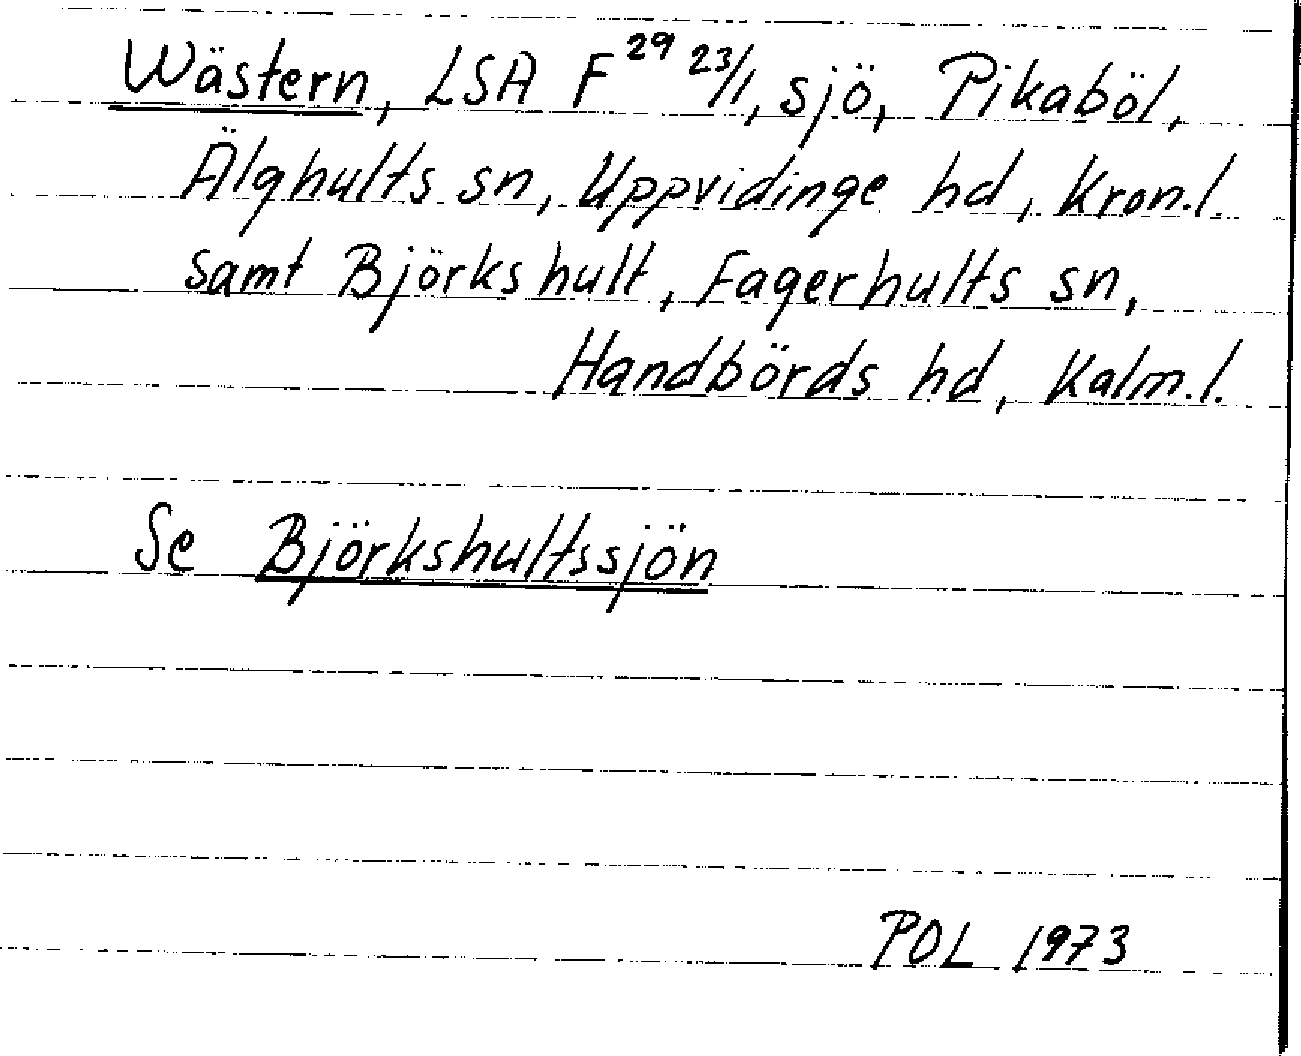 Wästern, LSA F 29 23/1, sjö, Pikaböl,
Älghults sn, Uppvidinge hd, Kron.l.
samt Björkshult, Fagerhults sn,
Handbörds hd, Kalm.l.
Se Björkshultssjön
POL 1973